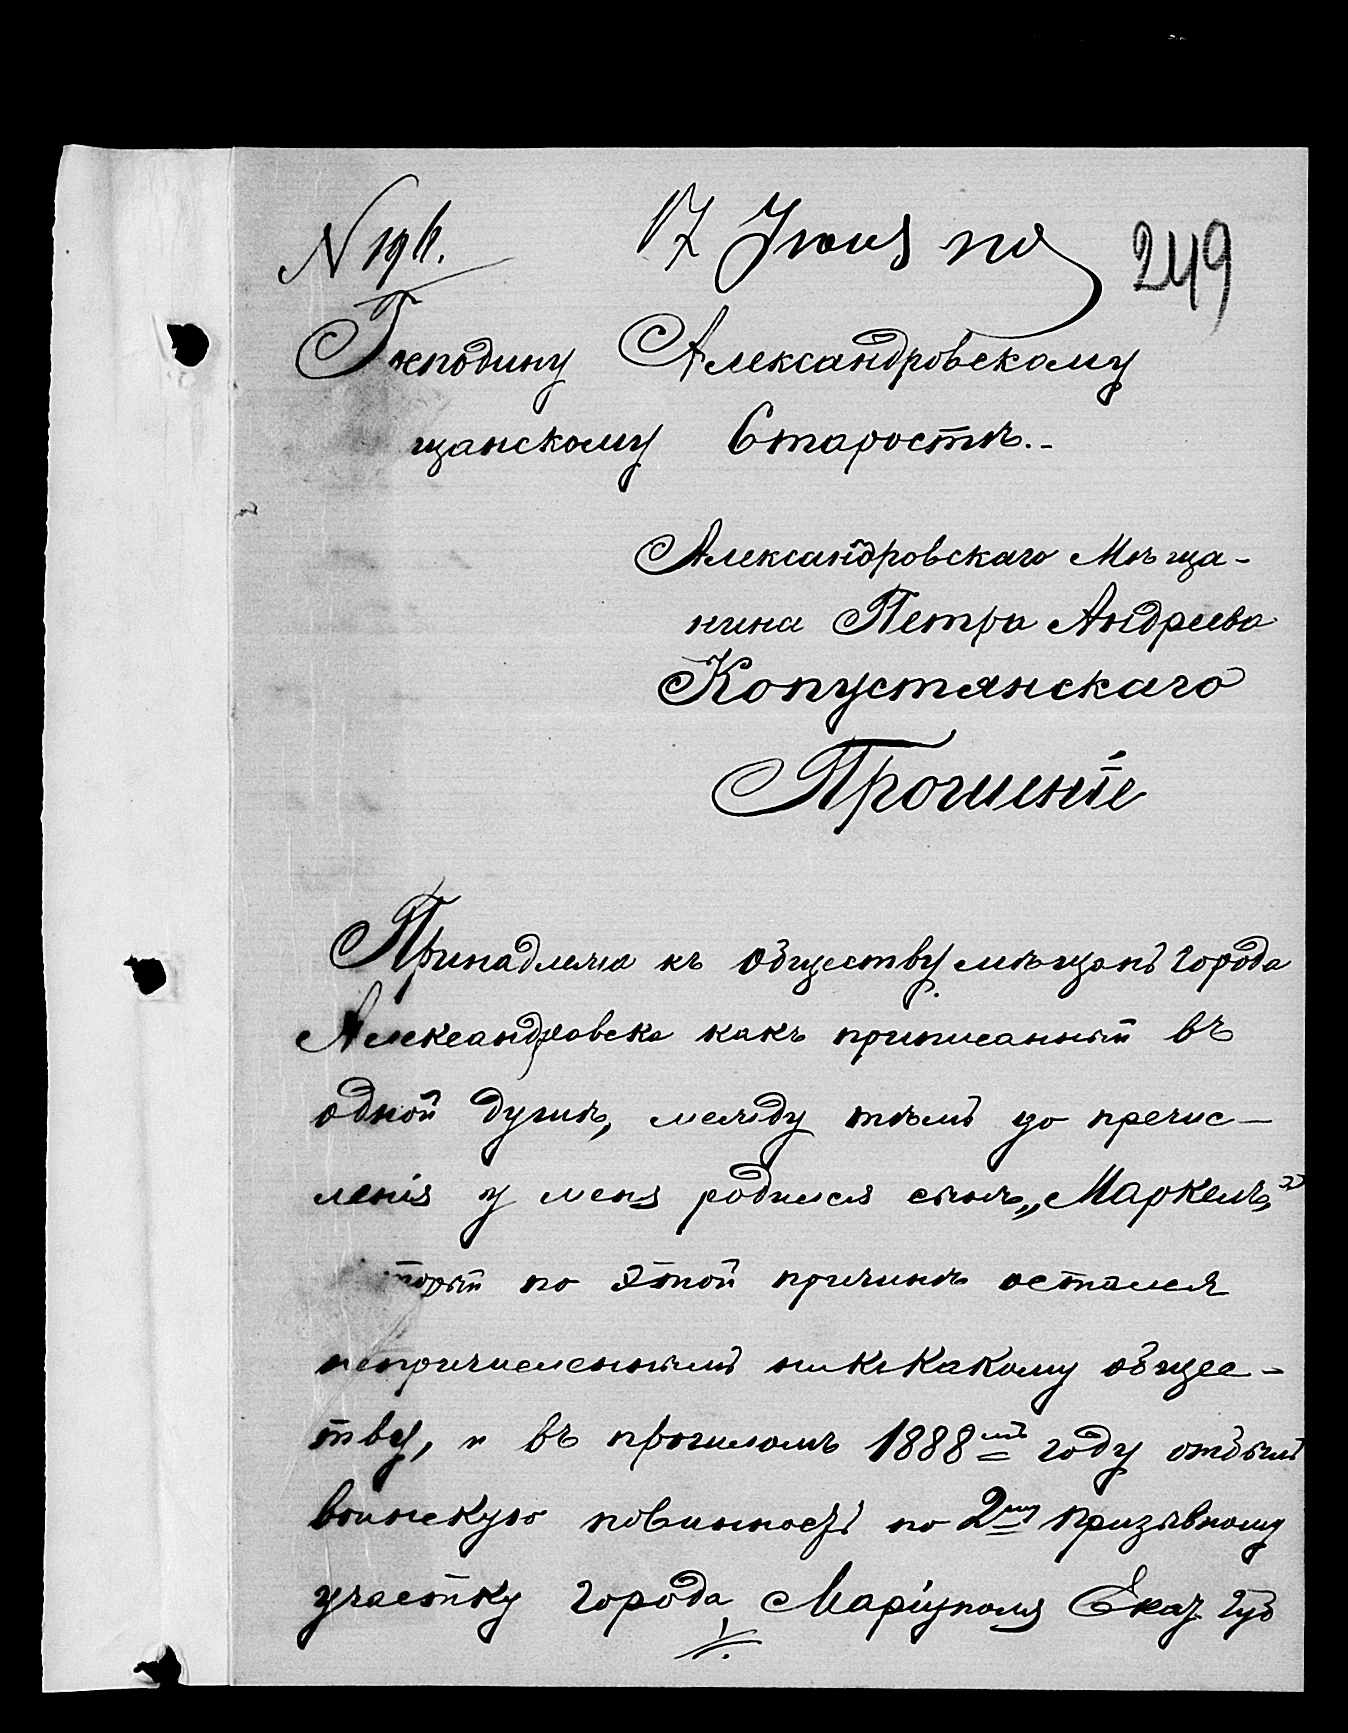 N 196.
17 Іюня
249
Господину Александровскому
щанскому Старостѣ.-
Александровскаго Мѣща-
нина Петра Андреева
Копустянскаго
Прошеніе
Принадлежа къ обществу мѣщанъ города
Александровска какъ приписанный въ
одной душѣ, между тѣмъ до пречис-
ленія у меня родился сынъ „Маркелъ"
торый по этой причинѣ остался
непричисленнымъ никкакому общес-
тву, и въ прошломъ 1888мъ году отбылъ
воинскую повинность по 2му призывному
участку города Маріуполя Екат. губ